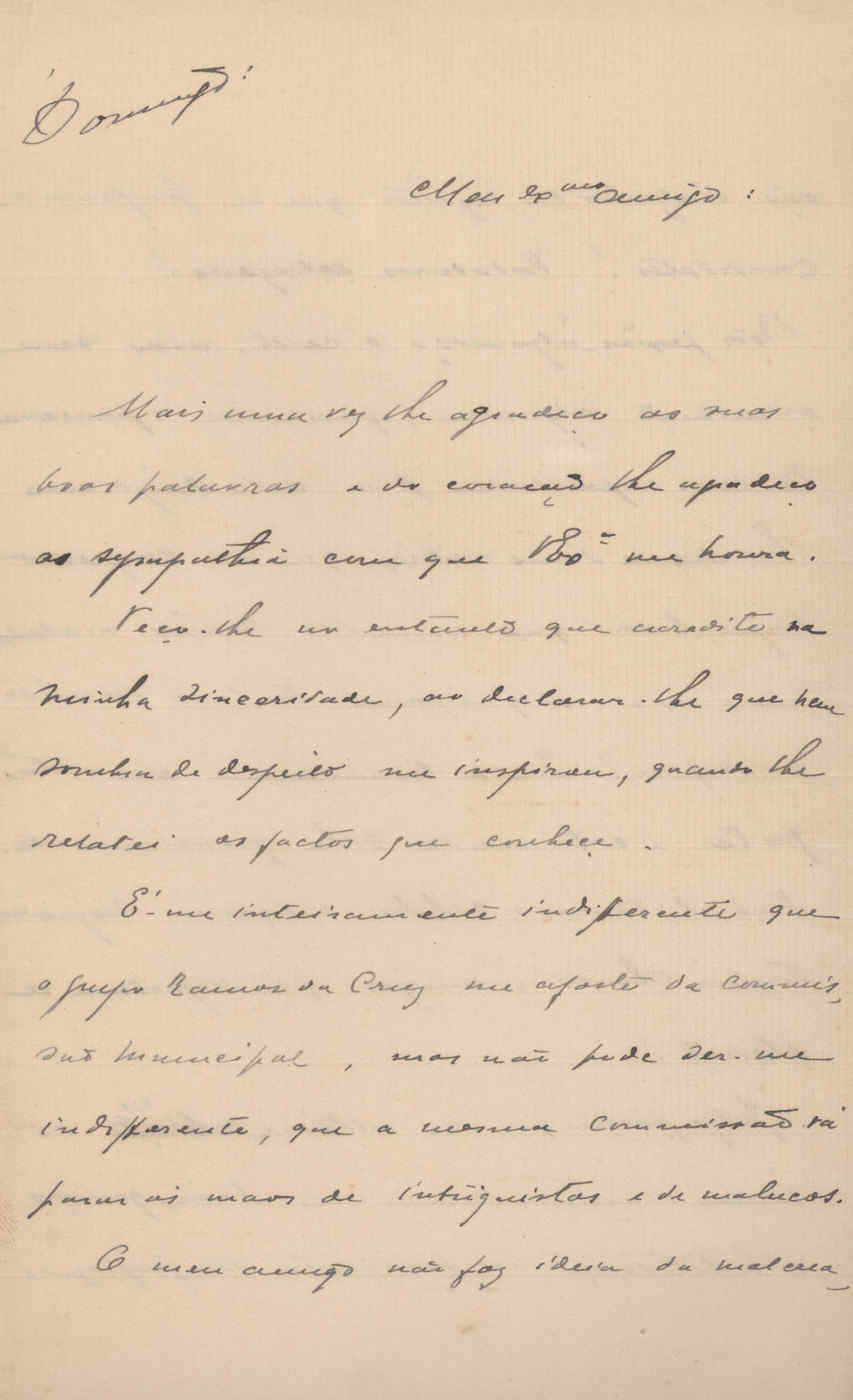 Domingo:
Meu exmo amigo:
Mais uma vez lhe agradeço as suas
boas palavras e do coração lhe agradeço
as sympathia com que VExª me honra.
Peço-lhe no entanto que acredite na
minha sinceridade, ao declarar-lhe que nem
sombra de despeito me inspirou, quando lhe
relatei os factos que conhece.
É-me inteiramente indifferente que
o grupo Ramos da Cruz me afaste da commis-
são municipal, mas não pode ser-me
indifferente, que a mesma commissão vá
parar ás mãos de intriguistas e de malucos.
O meu amigo não faz ideia da malcrea-